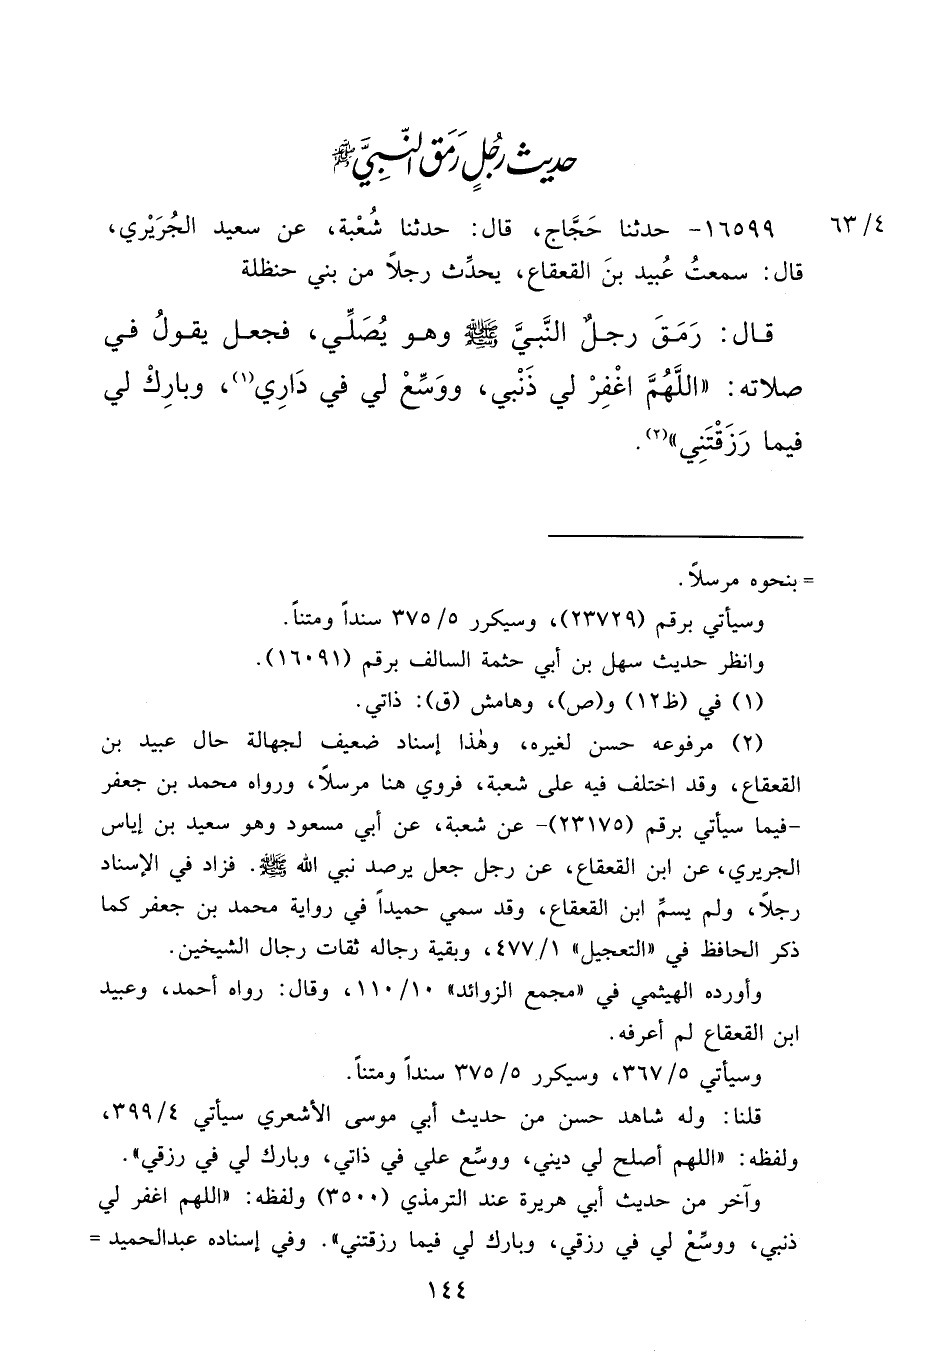 حديث رجلٍ رَمَقَ النَّبِيَّ ﷺ
٦٣/٤ ١٦٥٩٩- حدثنا حَجَّاج، قال: حدثنا شُعْبة، عن سعيد الجُرَيْري،
قال: سمعتُ عُبيد بنَ القعقاع، يحدِّث رجلاً من بني حنظلة
قال: رَمَقَ رجلٌ النَّبيَّ ﷺ وهو يُصَلِّي، فجعل يقولُ في
صلاته: «اللَّهُمَّ اغْفِرْ لي ذَنْبي، ووَسِّعْ لي في دَارِي(١)، وبارِكْ لي
فيما رَزَقْتَنِي»(٢).
= بنحوه مرسلاً.
وسيأتي برقم (٢٣٧٢٩)، وسيكرر ٣٧٥/٥ سنداً ومتناً.
وانظر حديث سهل بن أبي حثمة السالف برقم (١٦٠٩١).
(١) في (ظ١٢) و(ص)، وهامش (ق): ذاتي.
(٢) مرفوعه حسن لغيره، وهٰذا إسناد ضعيف لجهالة حال عبيد بن
القعقاع، وقد اختلف فيه على شعبة، فروي هنا مرسلاً، ورواه محمد بن جعفر
-فيما سيأتي برقم (٢٣١٧٥)- عن شعبة، عن أبي مسعود وهو سعيد بن إياس
الجريري، عن ابن القعقاع، عن رجل جعل يرصد نبي الله ﷺ. فزاد في الإسناد
رجلاً، ولم يسمِّ ابن القعقاع، وقد سمي حميداً في رواية محمد بن جعفر كما
ذكر الحافظ في «التعجيل» ٤٧٧/١، وبقية رجاله ثقات رجال الشيخين.
وأورده الهيثمي في «مجمع الزوائد» ١١٠/١٠، وقال: رواه أحمد، وعبيد
ابن القعقاع لم أعرفه.
وسيأتي ٣٦٧/٥، وسيكرر ٣٧٥/٥ سنداً ومتناً.
قلنا: وله شاهد حسن من حديث أبي موسى الأشعري سيأتي ٣٩٩/٤،
ولفظه: «اللهم أصلح لي ديني، ووسِّع علي في ذاتي، وبارك لي في رزقي».
وآخر من حديث أبي هريرة عند الترمذي (٣٥٠٠) ولفظه: «اللهم اغفر لي
ذنبي، ووسِّعْ لي في رزقي، وبارك لي فيما رزقتني». وفي إسناده عبدالحميد =
١٤٤